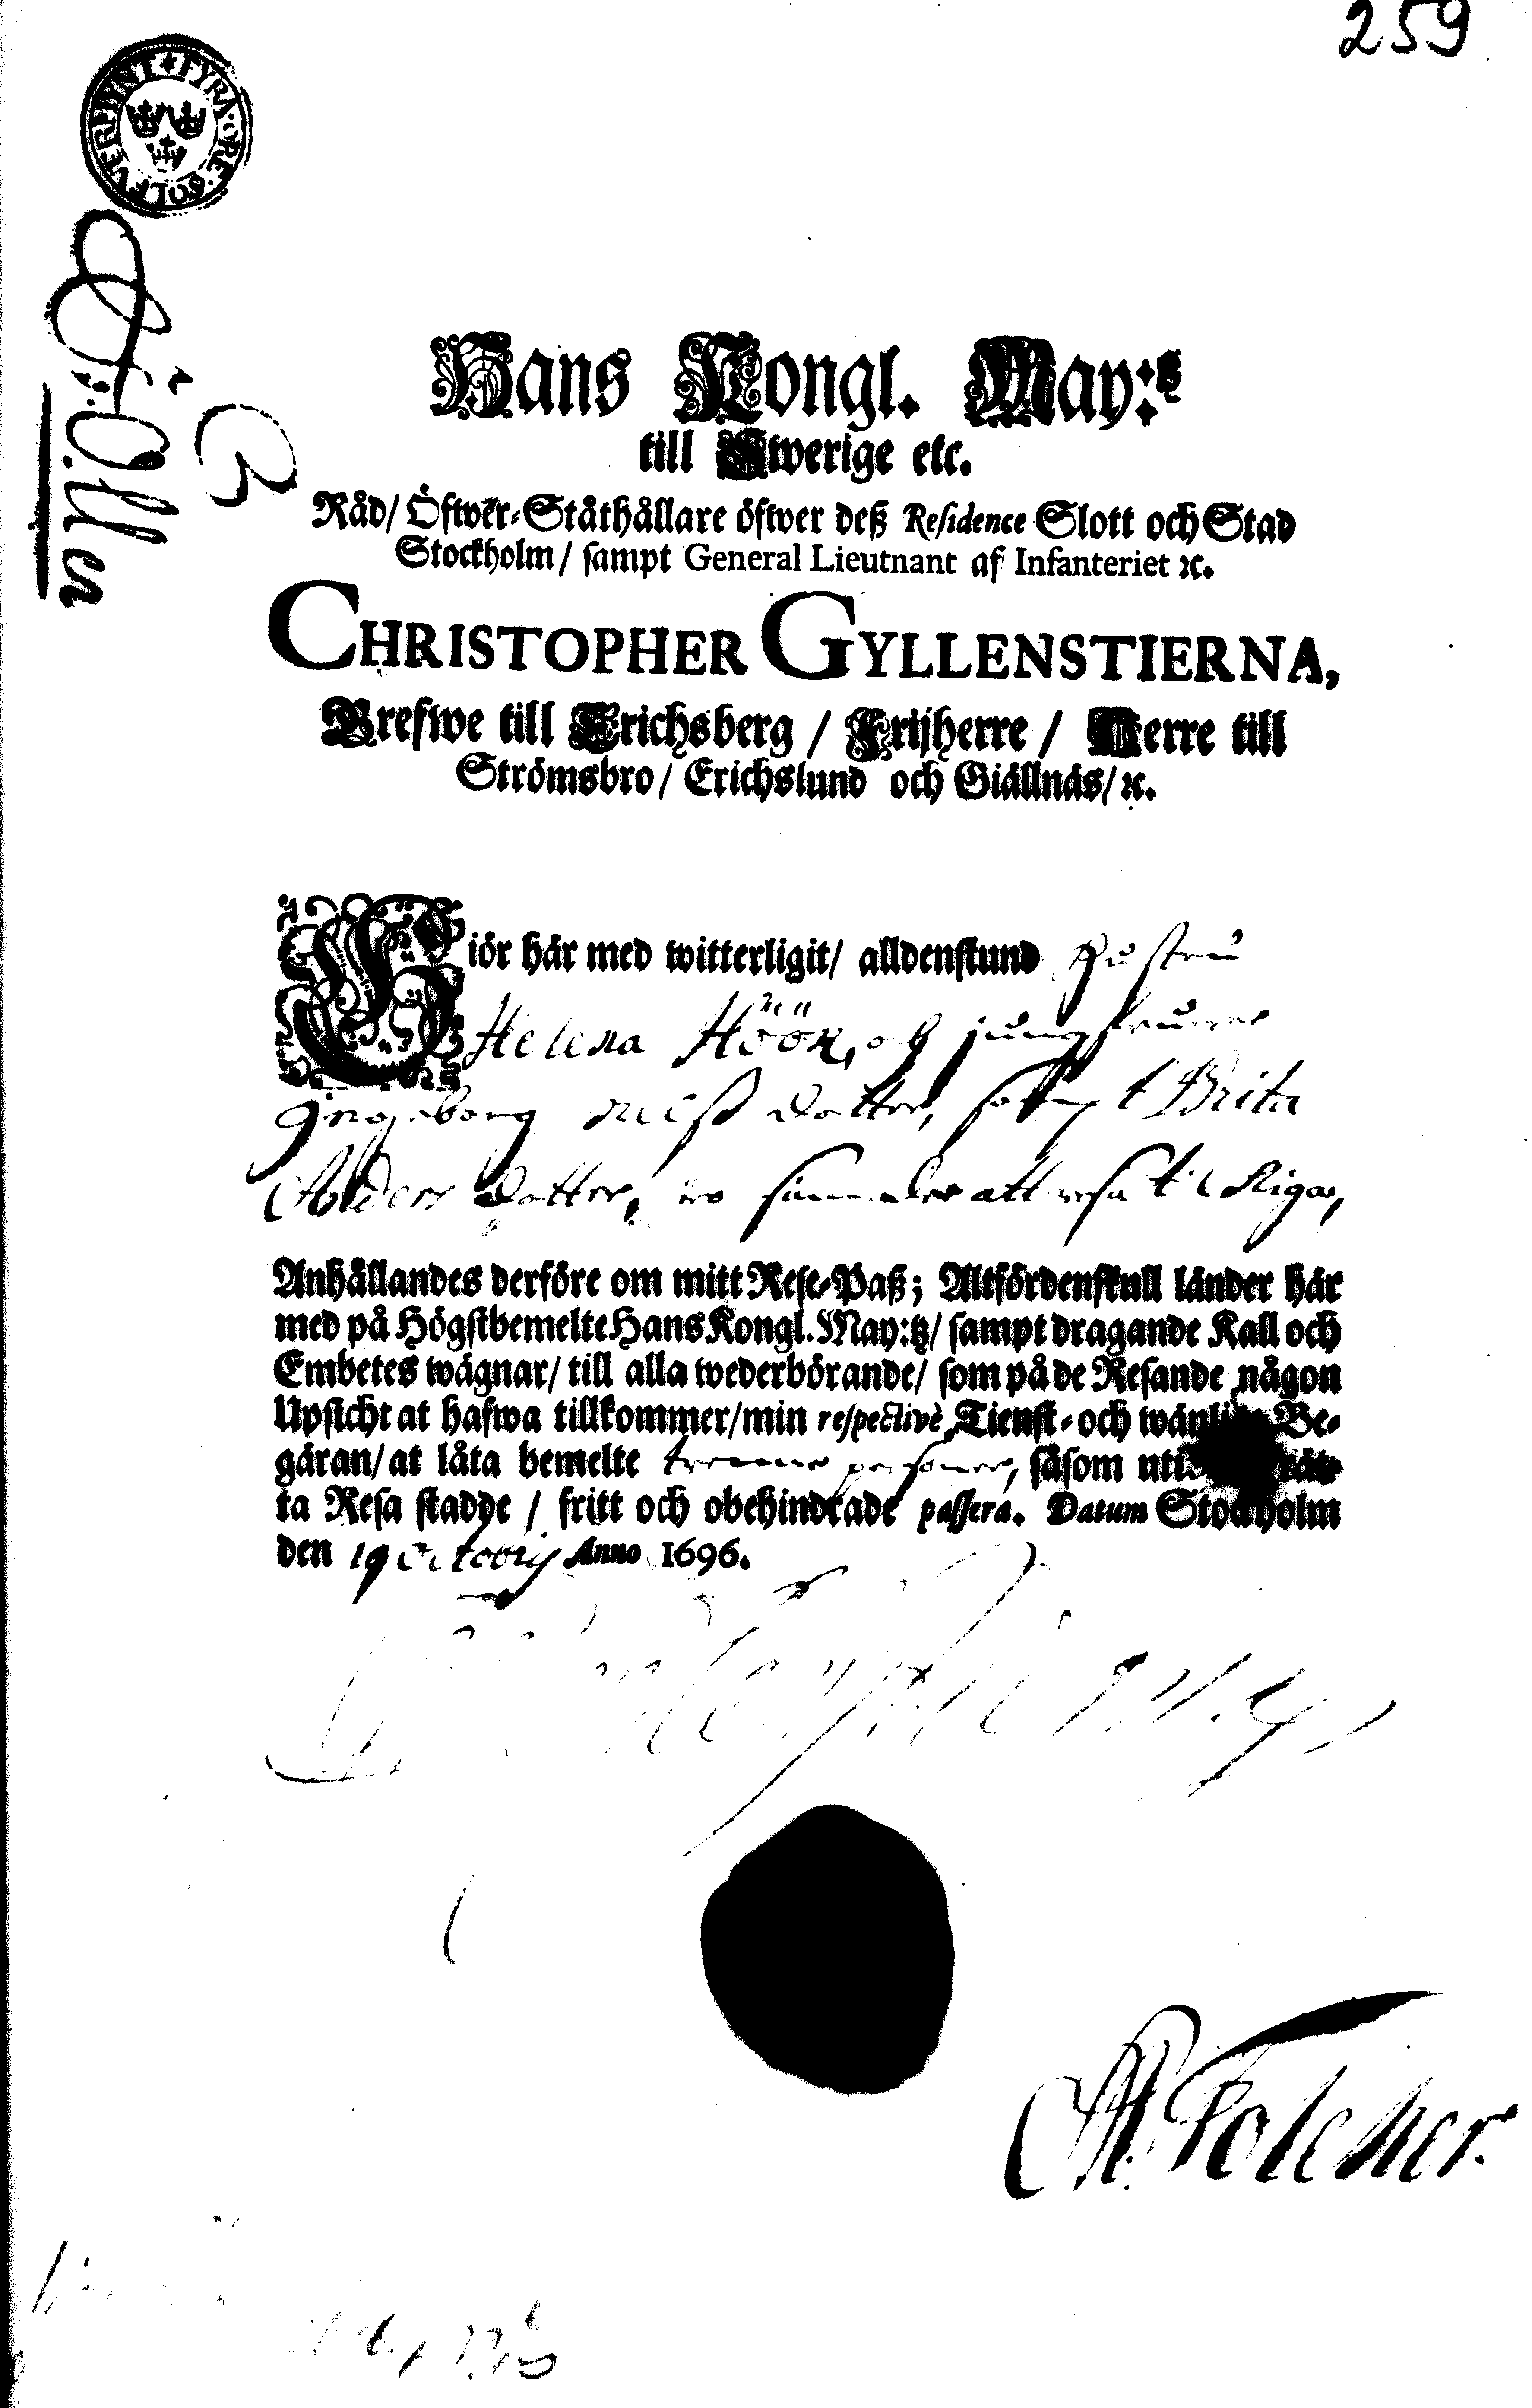 259
FYRA·ÖRE·SÖLFVERMYNT
Hans Kongl. May:s
till Swerige etc.
Råd/ Öfwer-Ståthållare öfwer deß Residence Slott och Stad
Stockholm/ sampt General Lieutnant af Infanteriet ꝛc.
CHRISTOPHER GYLLENSTIERNA,
Grefwe till Erichsberg / Frijherre / Herre till
Strömsbro/ Erichslund och Giällnäs/ ꝛc.
Giör här med witterligit/ alldenstund Hustru
Helena Höök, och jungfrurne
Ingeborg Nilß dotter, sampt Brita
Anders dotter, äro sinnade att resa til Riga,
Anhållandes derföre om mitt Rese-Paß; Altfördenskull länder här
med på Högstbemelte Hans Kongl. May:tz/ sampt dragande Kall och
Embetes wägnar/ till alla wederbörande/ som på de Resande någon
Upsicht at hafwa tillkommer/ min respectivè Tienst- och wänlige Be-
gäran/ at låta bemelte trenne personer, såsom uti
ta Resa stadde / fritt och obehindrade passera. Datum Stockholm
den 19 Octobris Anno 1696.